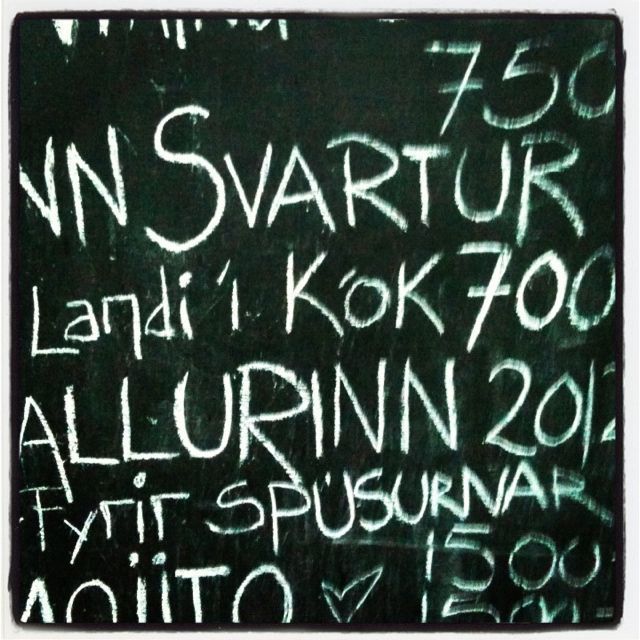 750
NN SVARTUR
Landi í KÓK 700
ALLURINN 2012
Fyrir SPÚSURNAR
1500
MOJITO ♡